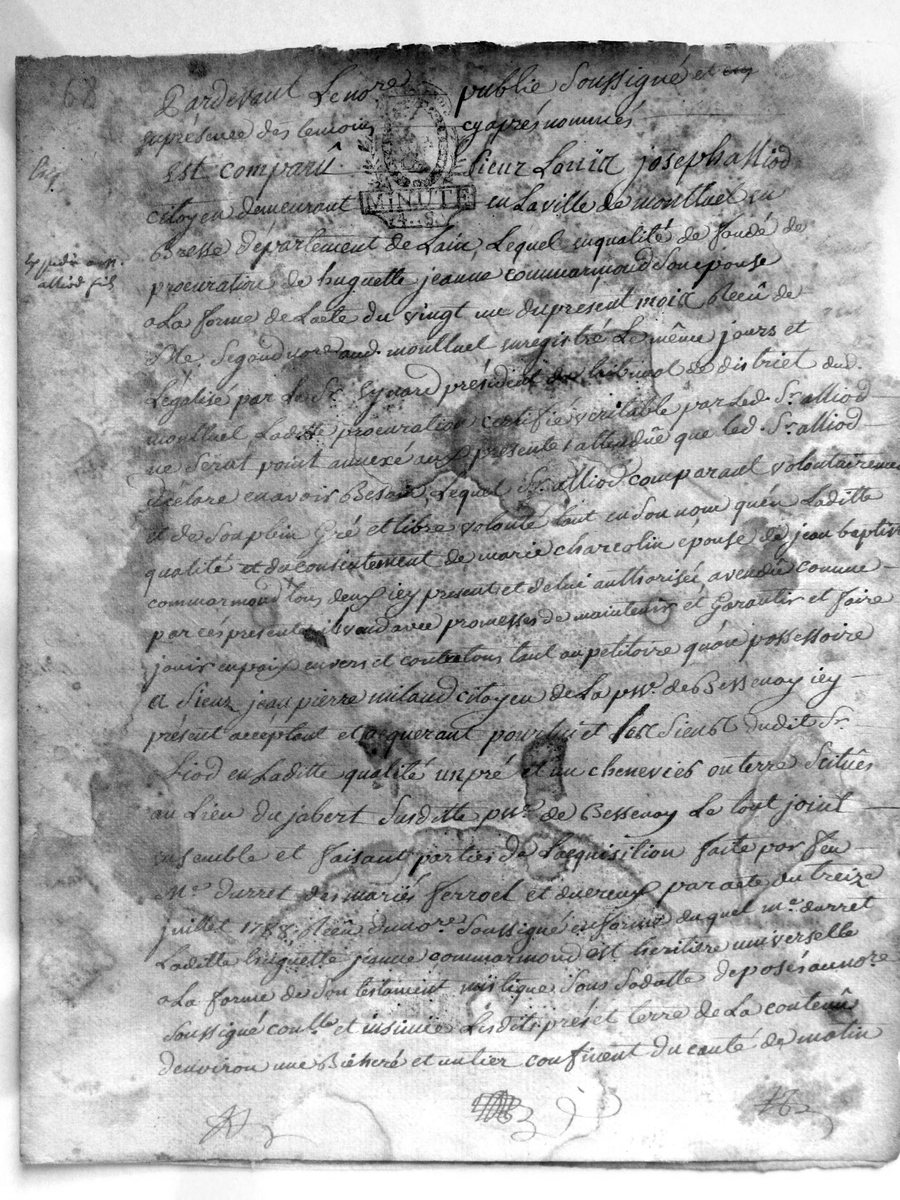 68
Pardevant Le nore public soussigné et en
saprésence des temoins cyaprés nommés
Est comparû Sieur Louïs joseph alliod
MINUTE
citoyen demeurant en La ville de montluel en
Bresse département de Lain, Lequel en qualité de fondé de
procuration de huguette jeanne commarmond son epouse
a La forme de Lacte du vingt un du present mois Recû de
Me Segond nore aud. montluel enregistré Le même jours et
Légalisé par Le Sr président du tribunal de district dud.
montluel Laditte procuration certifiée veritable par Led. Sr. alliod
ne serat point annexé aux presentes attendûe que led. Sr. alliod
déclare en avoir Besoin Lequel Sr. alliod comparant volontairement
et de Son plein Gré et libre volonté tant en Son nom qu'en Laditte
qualité et du consentement de marie charcotin epouse de jean baptiste
commarmond tous deux icy present et de lui authorisée a vendû comme
par ces presentes il vend avec promesses de maintenir et Garantir et faire
jouir en paix envers et contre tous tant au petitoire qu'au possessoire
a Sieur jean pierre milaud citoyen de La psse. de Bessenay icy
présent acceptant et acquerant pour lui et Les Siens dudit Sr.
alliod en Laditte qualité un pré et un chenevier ou terre Scitûes
au Lieu du jabert Susditte psse. de Bessenay Le tout joint
ensemble et faisant parties de Lacquisition faite par feu
Me. durret des mariés ferroel et ducreux par acte du treize
juillet 1788. Recû du nore. Soussigné en forme duquel me. durret
Laditte huguette jeanne commarmond est heritiere universelle
a La forme de Son testament mistique Sous Sadatte deposés au nore.
Soussigné conlle. et insinüe Lesdits prés et terre de La contenû
denviron une Bicherée et un tier confinent du couté de matin